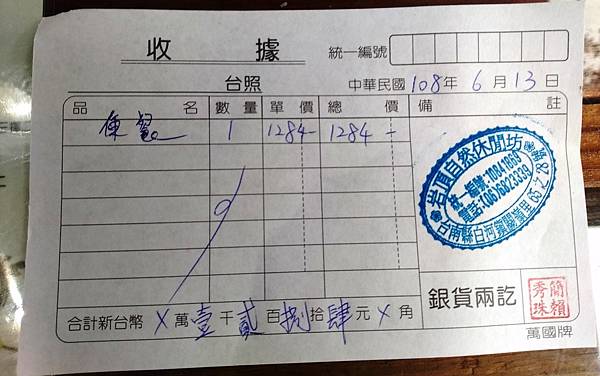 收據
統一編號
台照
中華民國 108 年 6 月 13 日
品名 數量 單價 總價 備註
便餐 1 1284- 1284-
岩頂自然休閒坊
統一編號:10841868
電話:(06)6823339
合計新台幣 X 萬 壹 千 貳 百 捌 拾 肆 元 X 角
銀貨兩訖
簡賴秀珠
萬國牌